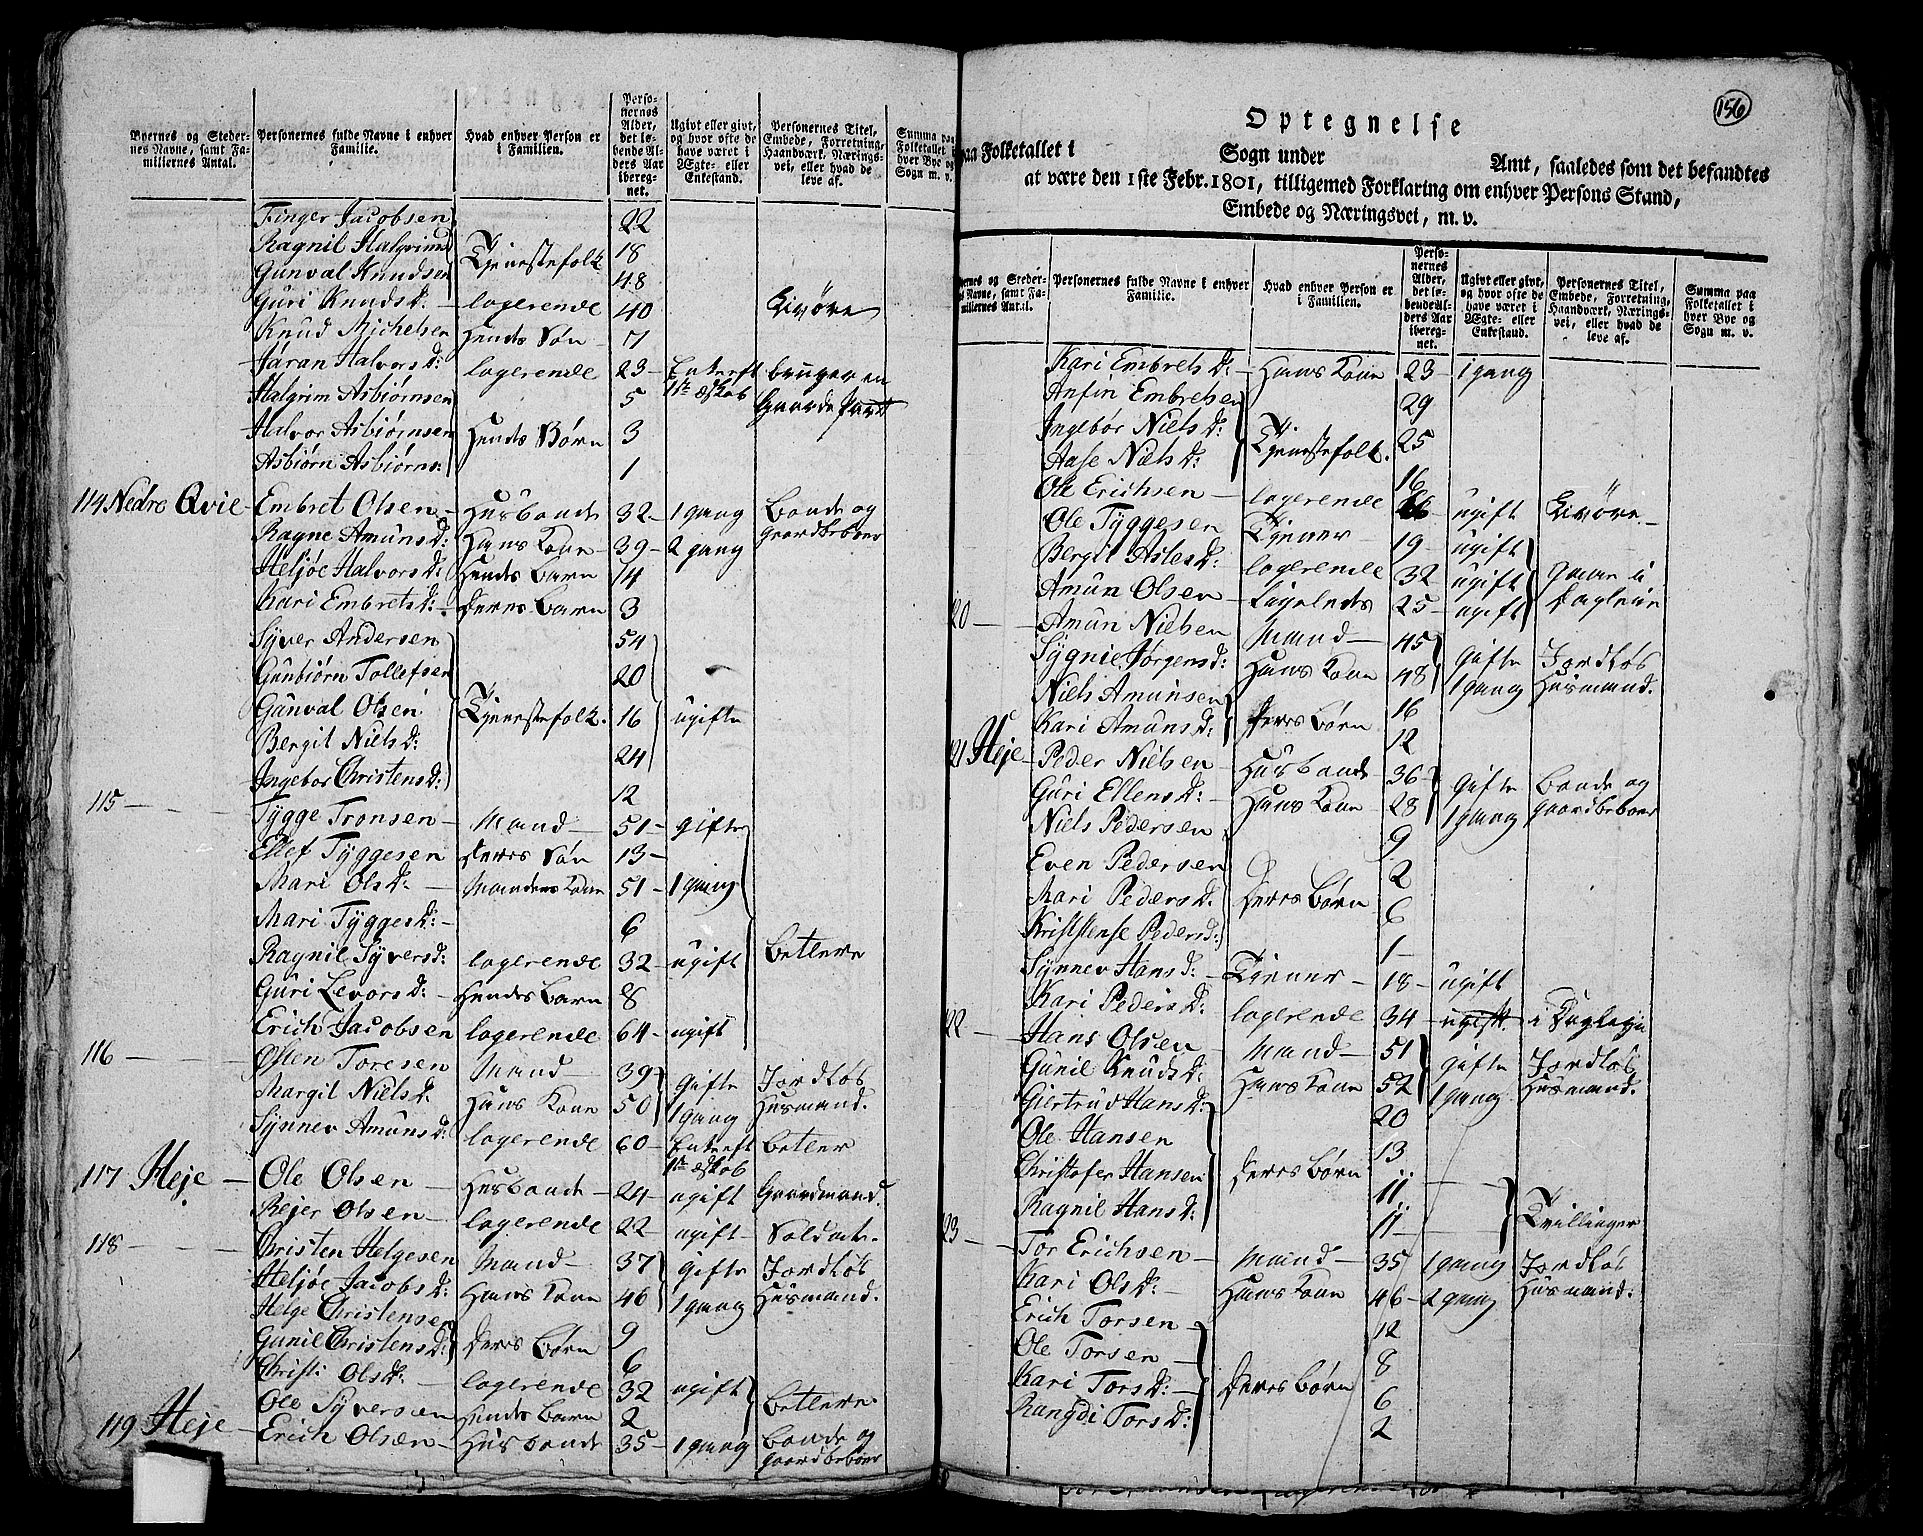 Byernes og Stedernes Navne, samt Familiernes Antal. | Personernes fulde Navne i enhver Familie. | Hvad enhver Person er i Familien. | Personernes Alder, det løbende Alders Aar iberegnet. | Ugivt eller givt, og hvor ofte de have været i Ægte- eller Enkestand. | Personernes Titel, Embede, Forretning, Haandværk, Næringsvei, eller hvad de leve af. | Summa paa Folketallet i hver Bye og Sogn m. v.
Finger Jacobsen 22
Ragnil Halgrimsd Tjenestefolk 18
Gunval Knudsen 48
Guri Knudsd: logerende 40
Knud Michelsen hends Søn 7
Jaran Halvorsd: logerende 23 Enkeeft 1te ægskab bruger en Gaarde Part
Halgrim Asbiørnsen 5
Halvor Asbiørnsen hends Børn 3
Asbiørn Asbiørns: 1
114 Nedre Qvie Embret Olsen Husbonde 32 1 gang Bonde og gaardbeboer
Ragne Amunsd: Hans Kone 39 2 gang
Heljøe Halvorsd: Hends Barn 14
Kari Embretsd: deres Barn 3
Syver Andersen 54
Gunbiørn Tollefsen 20
Gunval Olsen Tjenestefolk. 16 ugifte
Bergit Nielsd: 24
Ingebor Christensd: 12
115 Tygge Tronsen Mand 51 gifte
Ellef Tyggesen deres Søn 13
Mari Olsd: Mandens Kone 51 1 gang
Mari Tyggesd: 6
Ragnil Syversd: logerende 32 ugift betlere
Guri Levorsd: Hendes Barn 8
Erich Jacobsen logerende 64 ugift
116 Østen Toresen Mand 39 gifte Jordløs
Margit Nielsd. Hans Kone 50 1 gang Husmand.
Synnev Amunsd: logerende 60 Enkeeft 1te ægskab betler
117 Heje Ole Olsen Husbonde 24 ugift Gaardmand.
Rejer Olsen logerende 22 ugift Soldat.
118 Christen Helgesen Mand 37 gifte Jordløs
Heljøe Jacobsd: Hans Kone 46 1 gang Husmand.
Helge Christensen 9
Gunil Christensd: deres Børn 6
Christi Olsd: logerende 32 ugift betlere
Ole Syversen Hends Barn 2
119 Heje Erich Olsen Husbonde 35 1 gang Bonde og gaardbeboer
156
Optegnelse
paa Folketallet i Sogn under Amt, saaledes som det befandtes
at være den 1ste Febr. 1801, tilligemed Forklaring om enhver Persons Stand,
Embede og Næringsvei, m. v.
Byernes og Stedernes Navne, samt Familiernes Antal. | Personernes fulde Navne i enhver Familie. | Hvad enhver Person er i Familien. | Personernes Alder, det løbende Alders Aar iberegnet. | Ugivt eller givt, og hvor ofte de have været i Ægte- eller Enkestand. | Personernes Titel, Embede, Forretning, Haandværk, Næringsvei, eller hvad de leve af. | Summa paa Folketallet i hver Bye og Sogn m. v.
Kari Embretsd: Hans Kone 23 1 gang
Anfin Embretsen 29
Ingebor Nielsd: Tjenestefolk. 25
Aase Nielsd: 16
Ole Erichsen logerende ugift
Ole Tyggesen Tjener 19 ugift
Bergit Aslesd: logerende 32 ugift
Amun Olsen Ligeleds 25 ugift
20 Amun Nielsen Mand 45 gifte Jordløs
Sygnie Jørgensd: Hans Kone 48 1 gang Husmand.
Niels Amunsen 16
Kari Amunsd: deres Børn 12
21 Heje Peder Nielsen Husbonde 36 gifte Bonde og
Guri Ellensd: Hans Kone 28 1 gang gaardbeboer
Niels Pedersen 9
Even Pedersen 2
Mari Pedersd: deres Børn 6
Kriststense Pedersd: 1
Synnev Hansd: Tjener 18 ugift
Kari Pedersd: logerende 34 ugift i Dagleje
22 Hans Olsen Mand 51 gifte Jordløs
Gunil Knudsd: Hans Kone 52 1 gang Husmand.
Giertrud Hansd: 20
Ole Hansen 13
Christofer Hansen deres Børn 11
Ragnil Hansd: 11 Tvillinger
23 Tor Erichsen Mand 35 1 gang Jordløs
Kari Olsd: Hans Kone 46 2 gang Husmand.
Erich Torsen 12
Ole Torsen 8
Kari Torsd: deres Børn 6
Rangdi Torsd: 2